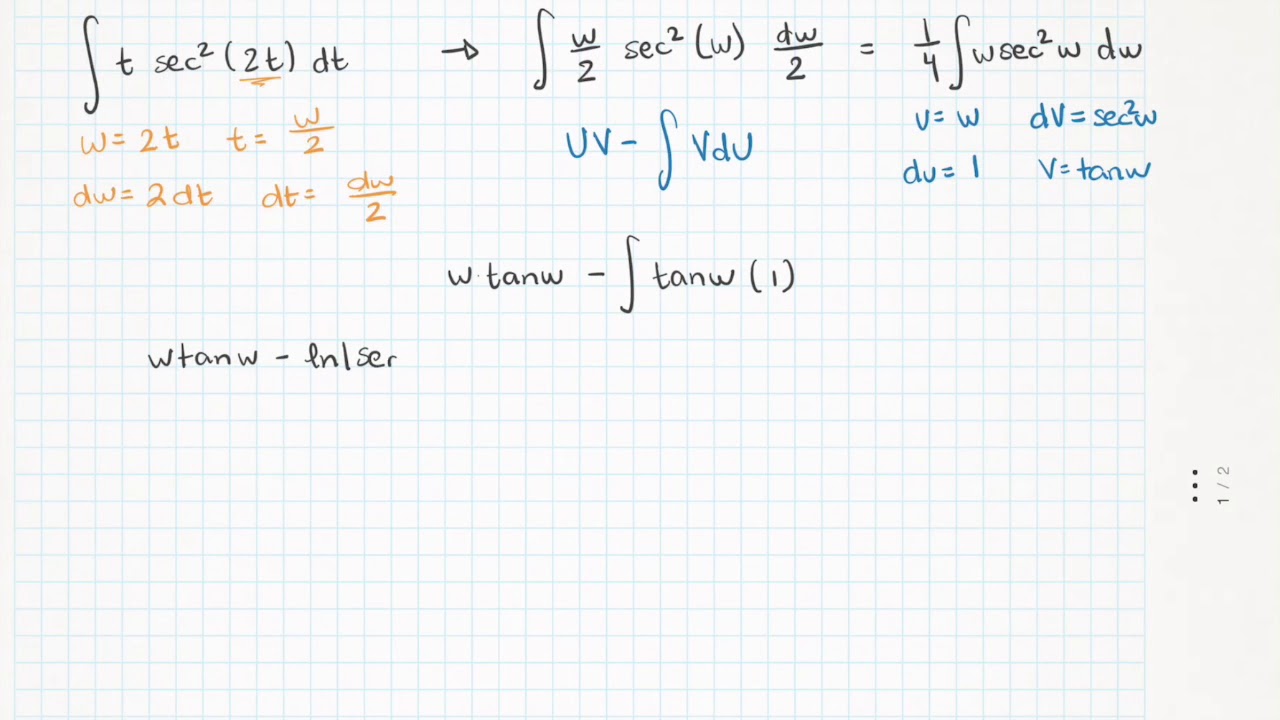 ∫ t sec² (2t) dt → ∫ w/2 sec² (w) dw/2 = 1/4 ∫ w sec² w dw
w = 2t t = w/2
dw = 2 dt dt = dw/2
UV - ∫ V dU
U = w dV = sec² w
du = 1 V = tan w
w · tan w - ∫ tan w (1)
w tan w - ln | sec
1 / 2